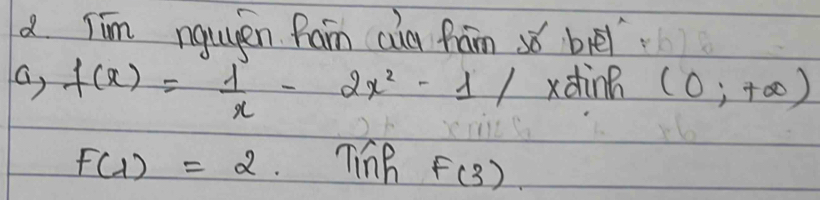 2. Tìm nguyên hàm của hàm số biết
a, f(x) = 1/x - 2x² - 1 / xđinh (0; +∞)
F(1) = 2. Tính F(3).